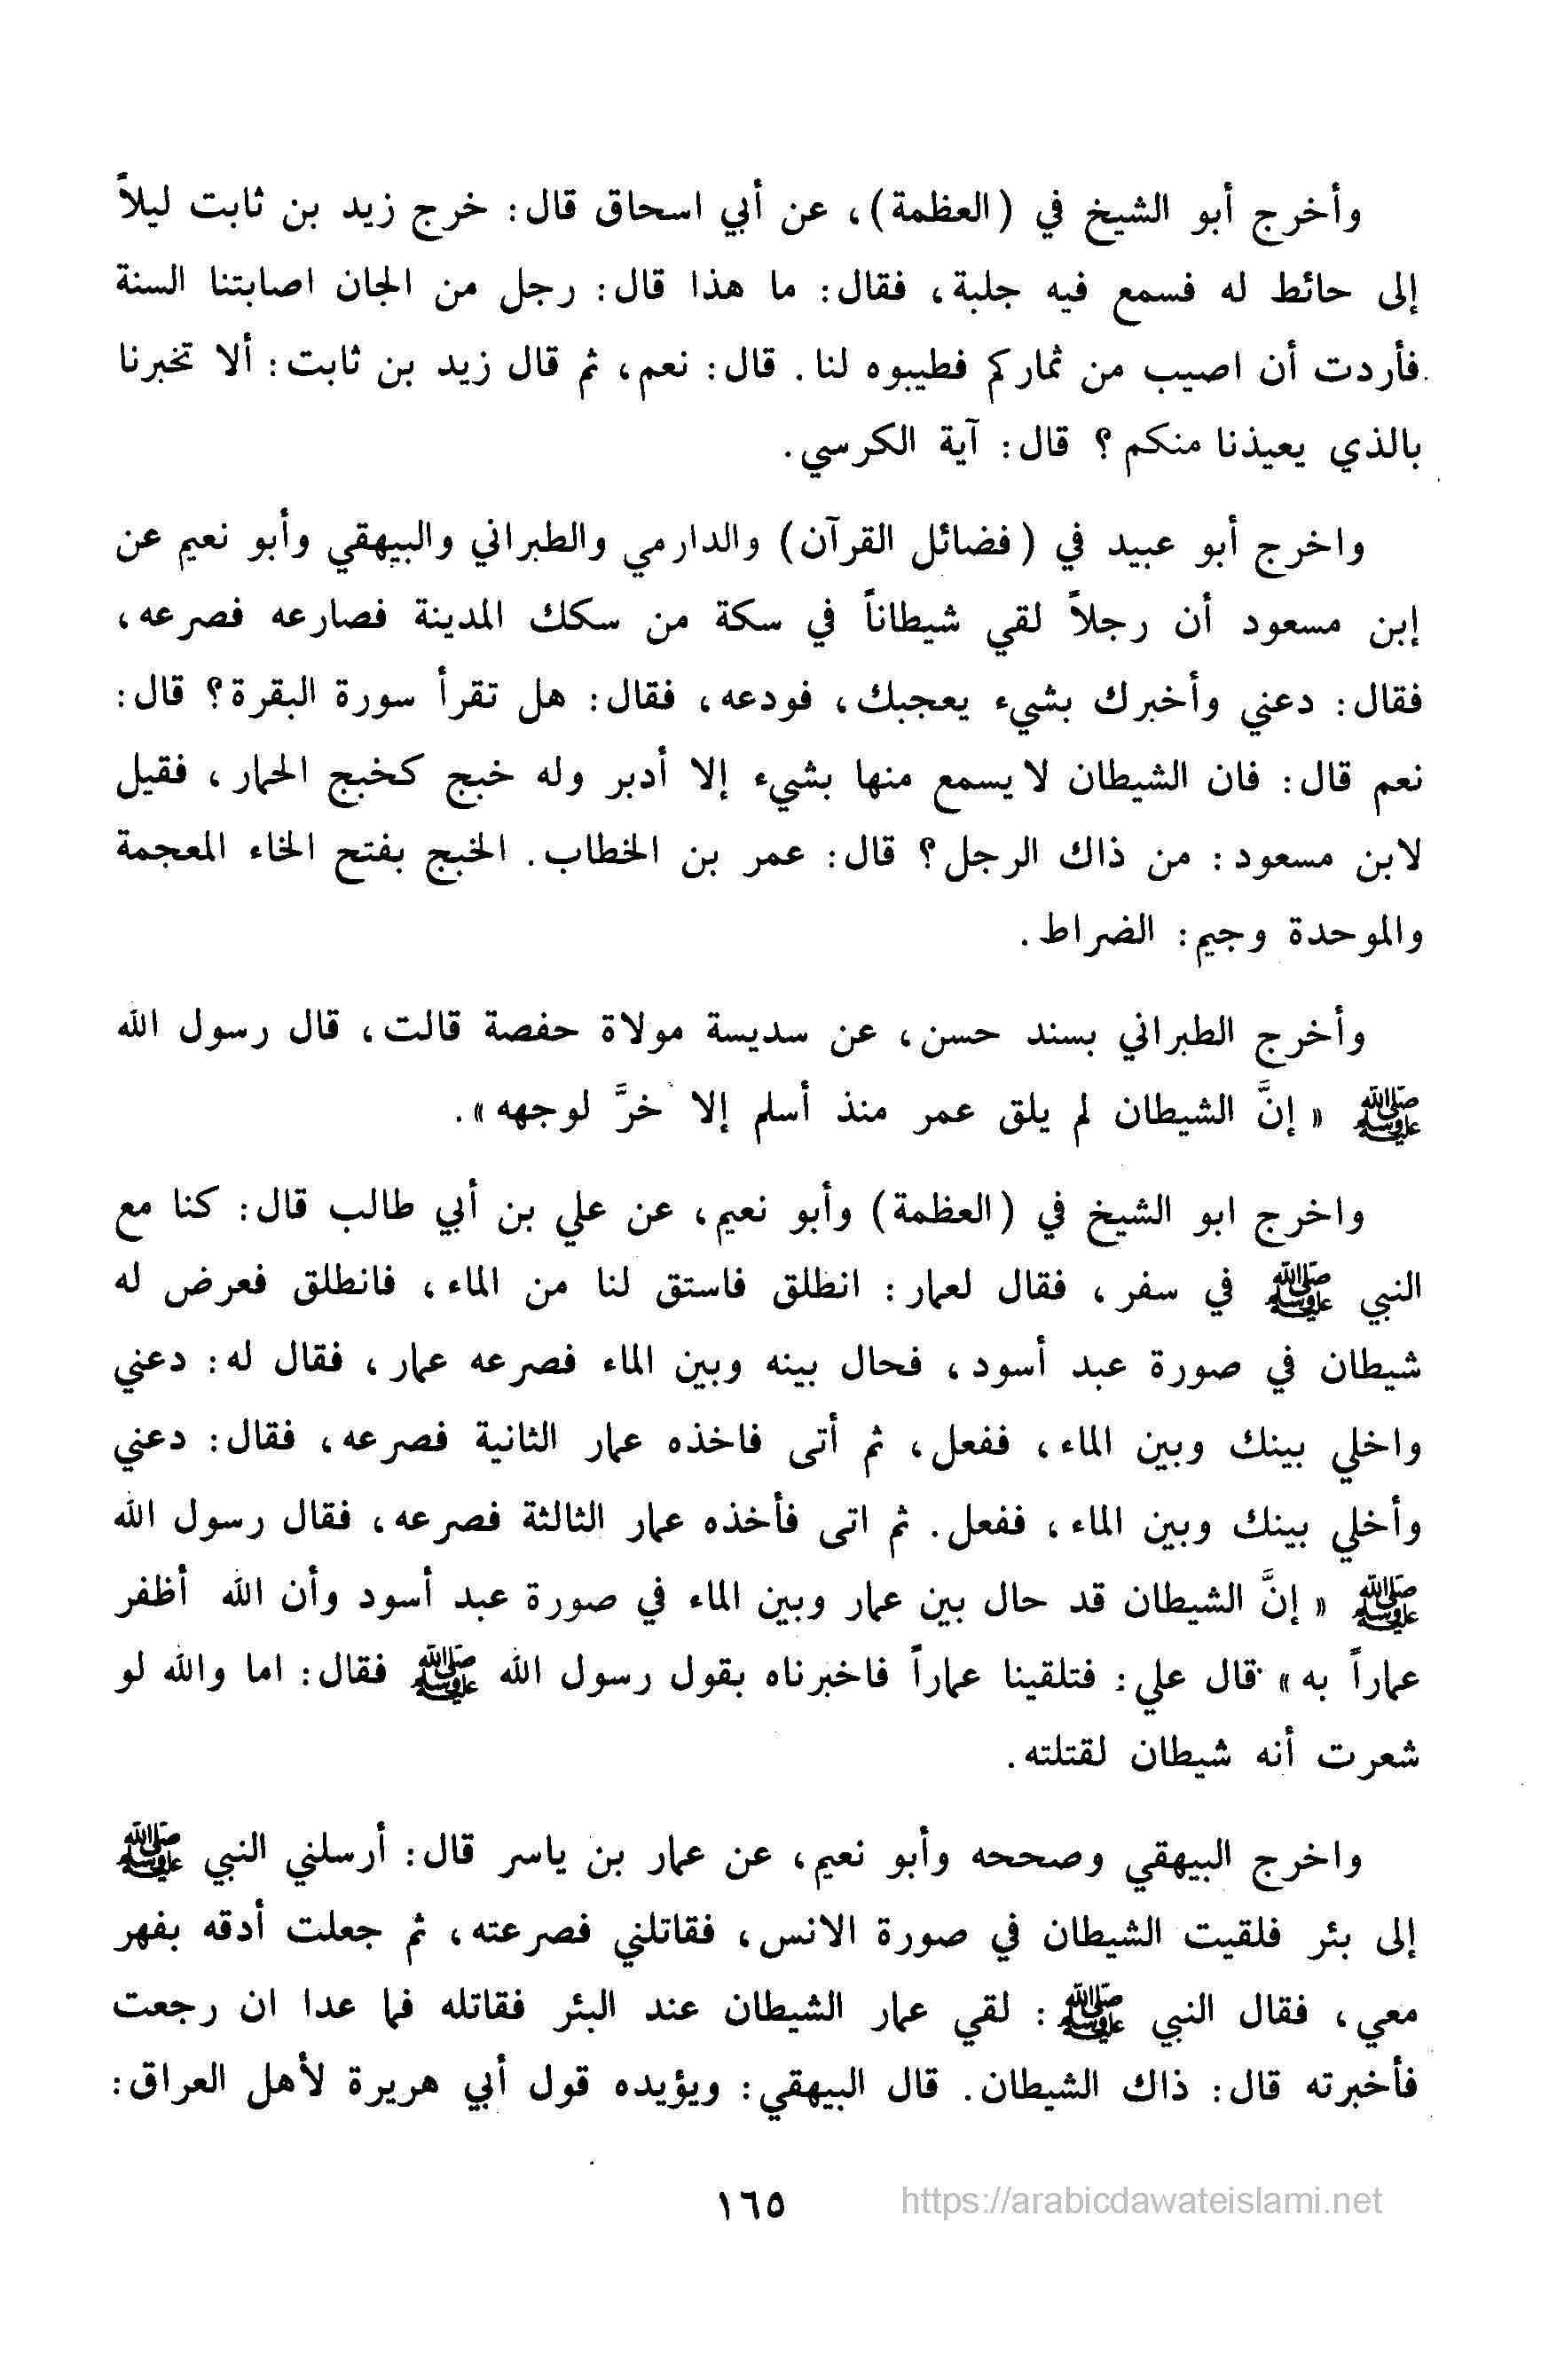 وأخرج أبو الشيخ في (العظمة)، عن أبي اسحاق قال: خرج زيد بن ثابت ليلاً
إلى حائط له فسمع فيه جلبة، فقال: ما هذا قال: رجل من الجان اصابتنا السنة
فأردت أن اصيب من ثماركم فطيبوه لنا. قال: نعم، ثم قال زيد بن ثابت: ألا تخبرنا
بالذي يعيذنا منكم؟ قال: آية الكرسي.
واخرج أبو عبيد في (فضائل القرآن) والدارمي والطبراني والبيهقي وأبو نعيم عن
إبن مسعود أن رجلاً لقي شيطاناً في سكة من سكك المدينة فصارعه فصرعه،
فقال: دعني وأخبرك بشيء يعجبك، فودعه، فقال: هل تقرأ سورة البقرة؟ قال:
نعم قال: فان الشيطان لا يسمع منها بشيء إلا أدبر وله خبج كخبج الحمار، فقيل
لابن مسعود: من ذاك الرجل؟ قال: عمر بن الخطاب. الخبج بفتح الخاء المعجمة
والموحدة وجيم: الضراط.
وأخرج الطبراني بسند حسن، عن سديسة مولاة حفصة قالت، قال رسول الله
ﷺ «إنَّ الشيطان لم يلق عمر منذ أسلم إلا خرَّ لوجهه».
واخرج ابو الشيخ في (العظمة) وأبو نعيم، عن علي بن أبي طالب قال: كنا مع
النبي ﷺ في سفر، فقال لعمار: انطلق فاستق لنا من الماء، فانطلق فعرض له
شيطان في صورة عبد أسود، فحال بينه وبين الماء فصرعه عمار، فقال له: دعني
واخلي بينك وبين الماء، ففعل، ثم أتى فاخذه عمار الثانية فصرعه، فقال: دعني
وأخلي بينك وبين الماء، ففعل. ثم اتى فأخذه عمار الثالثة فصرعه، فقال رسول الله
ﷺ «إنَّ الشيطان قد حال بين عمار وبين الماء في صورة عبد أسود وأن الله أظفر
عماراً به» قال علي: فتلقينا عماراً فاخبرناه بقول رسول الله ﷺ فقال: اما والله لو
شعرت أنه شيطان لقتلته.
واخرج البيهقي وصححه وأبو نعيم، عن عمار بن ياسر قال: أرسلني النبي ﷺ
إلى بئر فلقيت الشيطان في صورة الانس، فقاتلني فصرعته، ثم جعلت أدقه بفهر
معي، فقال النبي ﷺ: لقي عمار الشيطان عند البئر فقاتله فما عدا ان رجعت
فأخبرته قال: ذاك الشيطان. قال البيهقي: ويؤيده قول أبي هريرة لأهل العراق:
١٦٥
https://arabicdawateislami.net